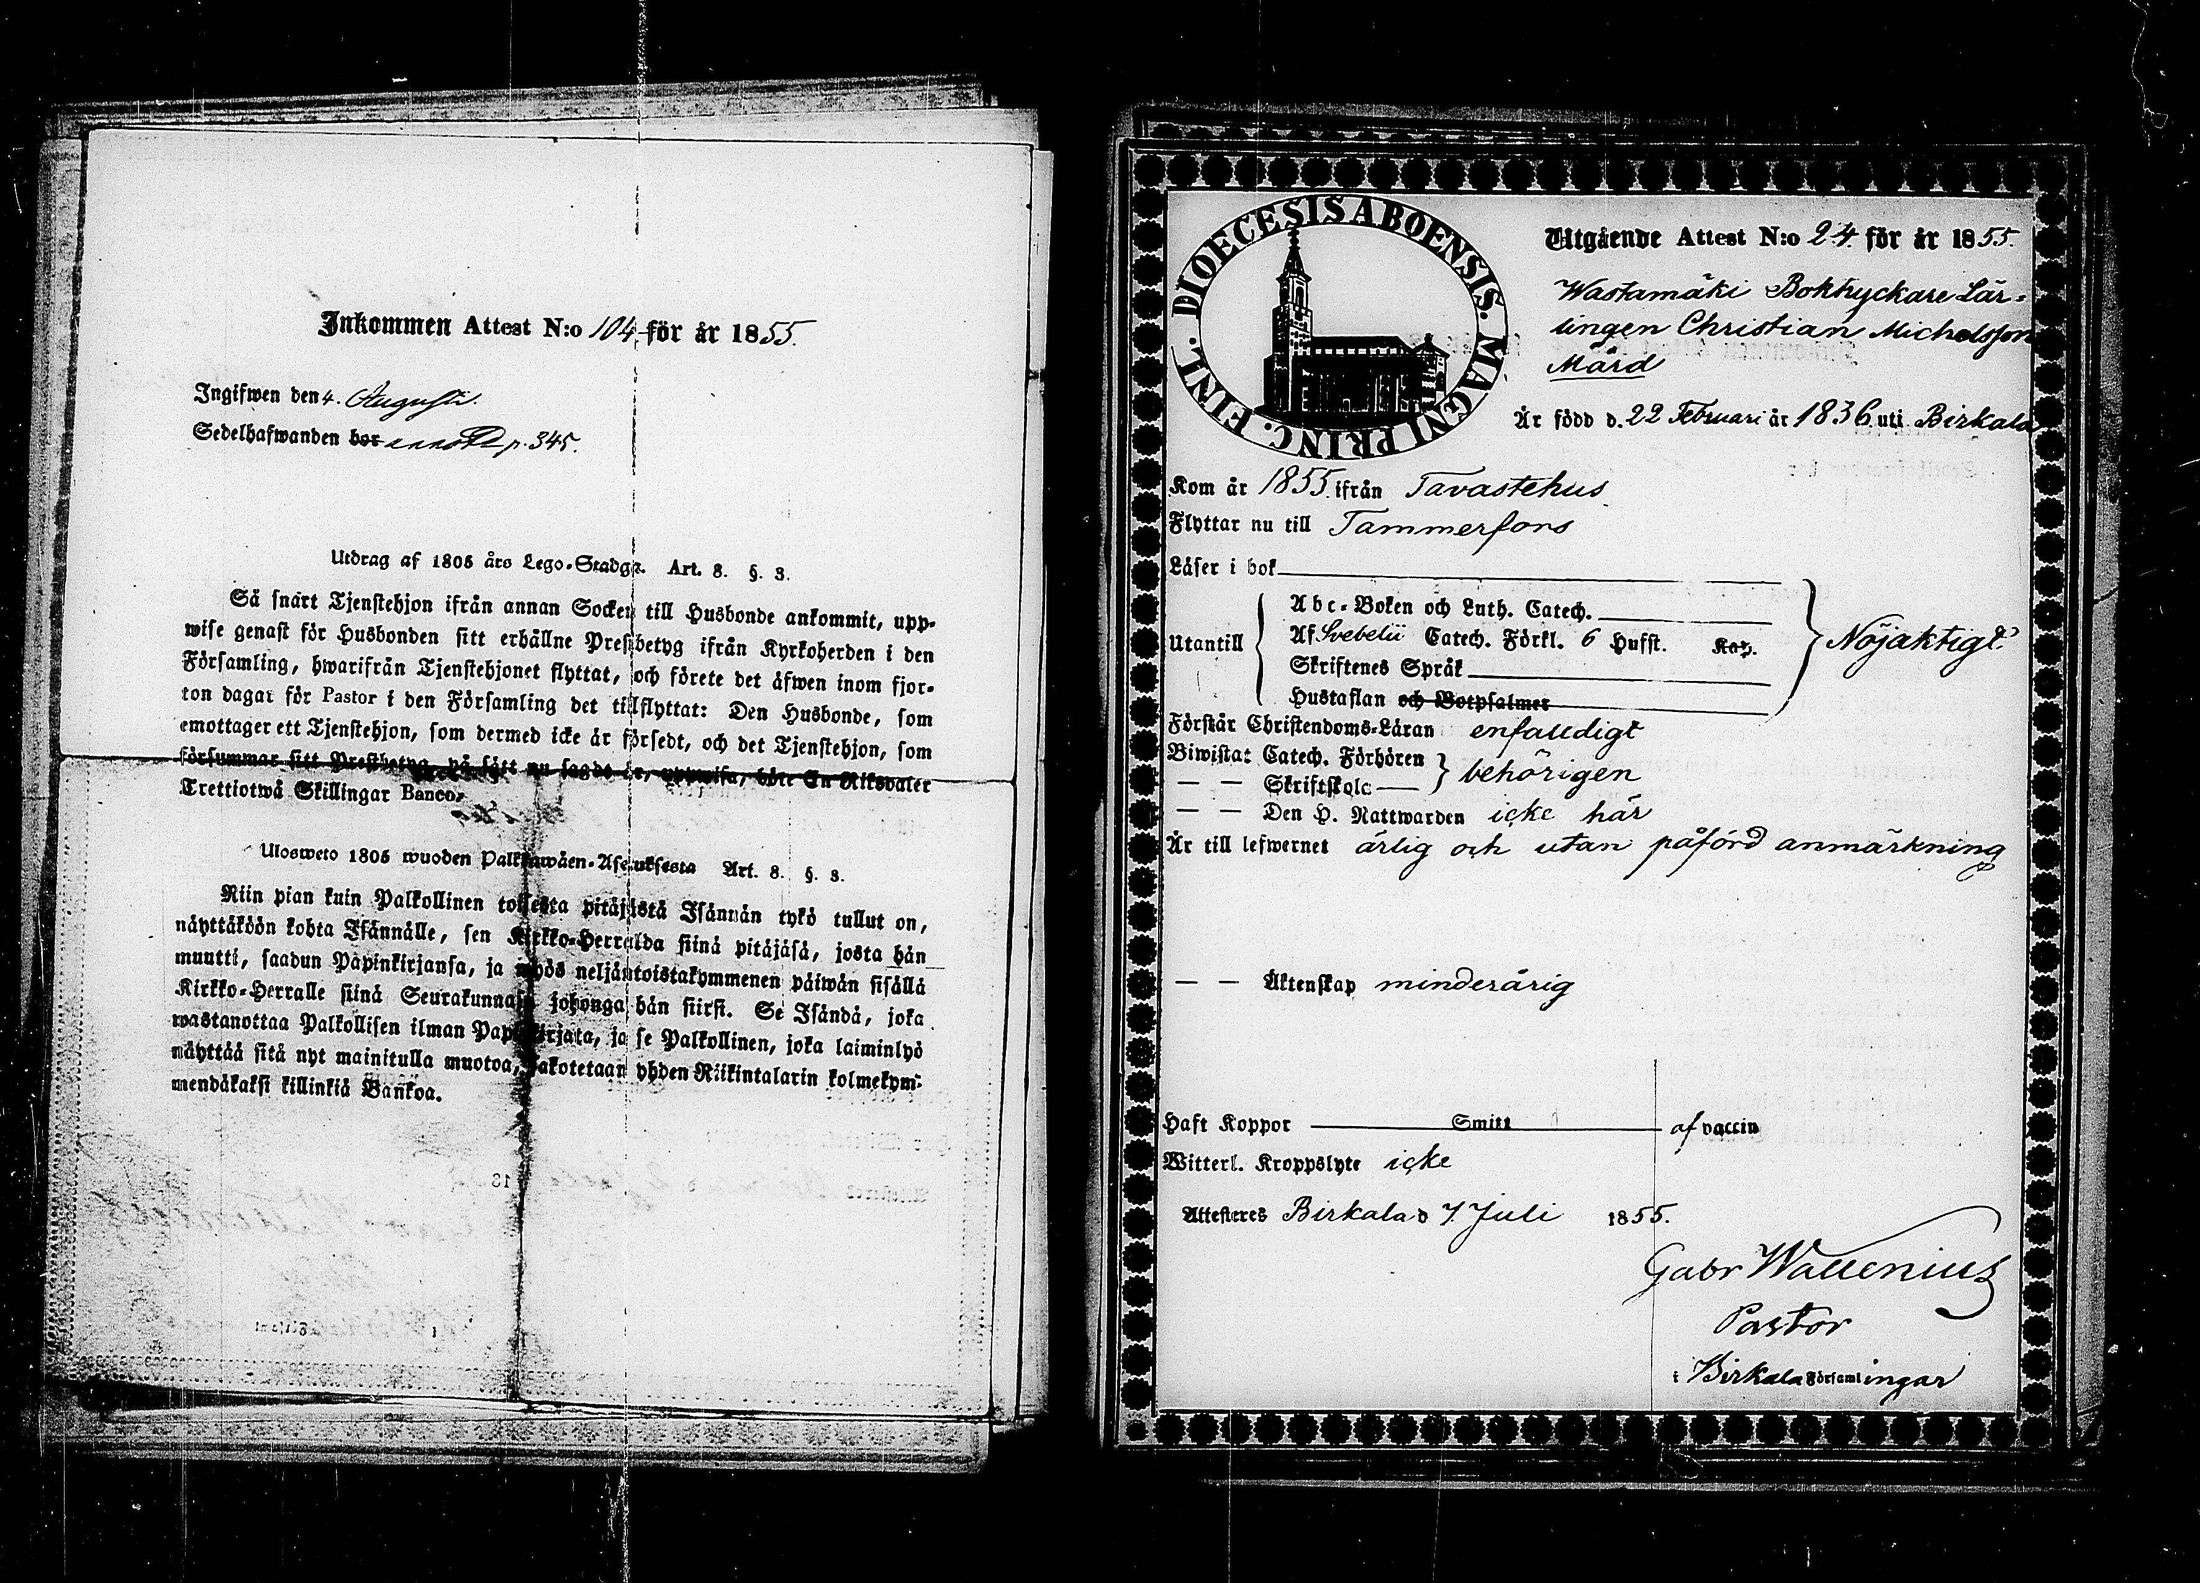 Inkommen Attest N:o 104 för år 1855.
Ingifwen den 4. Augusti.
Sedelhafwanden bor p. 345.
Utdrag af 1805 års Lego-Stadga. Art. 8. §. 3.
Så snart Tjenstehjon ifrån annan Socken till Husbonde ankommit, upp-
wise genast för Husbonden sitt erhållne Prestbetyg ifrån Kyrkoherden i den
Församling, hwarifrån Tjenstehjonet flyttat, och förete det äfwen inom fjor-
ton dagar för Pastor i den Församling det tillflyttat: Den Husbonde, som
emottager ett Tjenstehjon, som dermed icke är försedt, och det Tjenstehjon, som
försummar sitt Prestbetyg, på sätt nu sagdt är, uppwisa, böte En Riksdaler
Trettiotwå Skillingar Banco.
Ulosweto 1805 wuoden Palkkawäen-Asetuksesta Art. 8. §. 3.
Niin pian kuin Palkollinen toisesta pitäjästä Isännän tykö tullut on,
näyttäköön kohta Isännälle, sen Kirkko-Herralda siinä pitäjäsä, josta hän
muutti, saadun Papinkirjansa, ja myös neljäntoistakymmenen päiwän sisällä
Kirkko-Herralle siinä Seurakunnasa johonga hän siirsi. Se Isändä, joka
wastanottaa Palkollisen ilman Papinkirjata, ja se Palkollinen, joka laiminlyö
näyttää sitä nyt mainitulla muotoa, sakotetaan yhden Riikintalarin kolmekym-
mendäkaksi killinkiä Bankoa.
DIOECESIS ABOENSIS. MAGNI PRINC. FINL.
Utgående Attest N:o 24. för år 1855.
Wastamäki Boktryckare Lär-
lingen Christian Michelsson
Mård
Är född d. 22 Februari år 1836 uti Birkala
Kom år 1855. ifrån Tavastehus
Flyttar nu till Tammerfors
Läser i bok
Abc-Boken och Luth. Catech.
Utantill Af Svebelii Catech. Förkl. 6 Hufst. Kap. Nöjaktigt
Skriftenes Språk
Hustaflan och Botpsalmer
Förstår Christendoms-Läran enfaldigt
Biwistat Catech. Förhören behörigen
— — Skriftskola
— — Den H. Nattwarden icke här
Är till lefwernet ärlig och utan påförd anmärkning
— — Äktenskap minderårig
Haft Koppor Smitt af vaccin
Witterl. Kroppslyte icke
Attesteres Birkala d 7. Juli 1855.
Gabr Wallenius
Pastor
i Birkala Församlingar